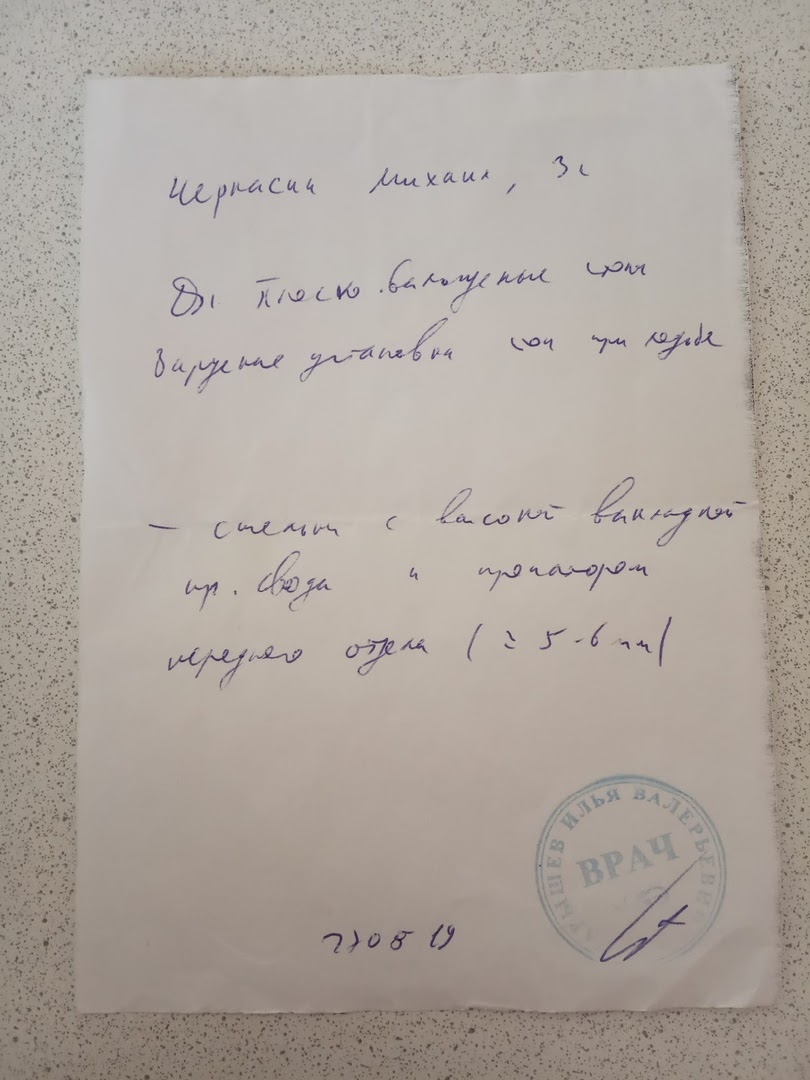 Черкасин Михаил, 3г
Ds: Плоско-вальгусные стопы
Варусная установка стоп при ходьбе
– стельки с высокой выкладкой
пр. свода и пронатором
переднего отдела (≥ 5-6 мм)
ИЛЬЯ ВАЛЕРЬЕВИЧ
ВРАЧ
19